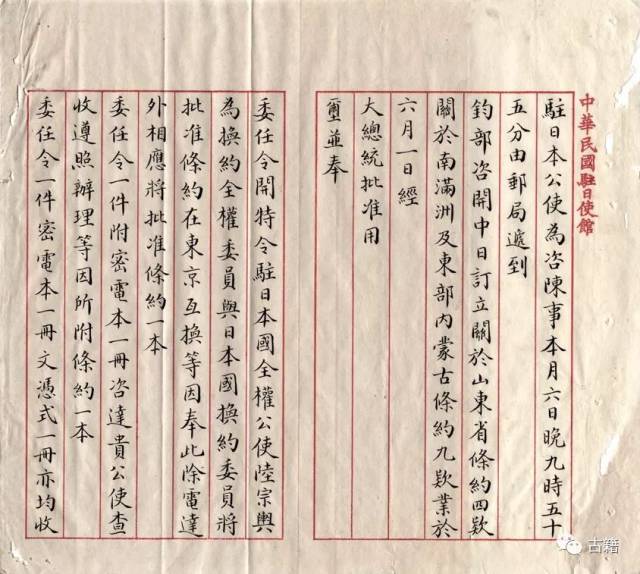 中華民國駐日使館
駐日本公使為咨陳事本月六日晚九時五十
五分由郵局遞到
鈞部咨開中日訂立關於山東省條約四欵
關於南滿洲及東部內蒙古條約九欵業於
六月一日經
大總統批准用
璽並奉
委任令開特令駐日本國全權公使陸宗輿
為換約全權委員與日本國換約委員將
批准條約在東京互換等因奉此除電達
外相應將批准條約一本
委任令一件附密電本一冊咨達貴公使查
收遵照辦理等因所附條約一本
委任令一件密電本一冊文憑式一冊亦均收
古籍